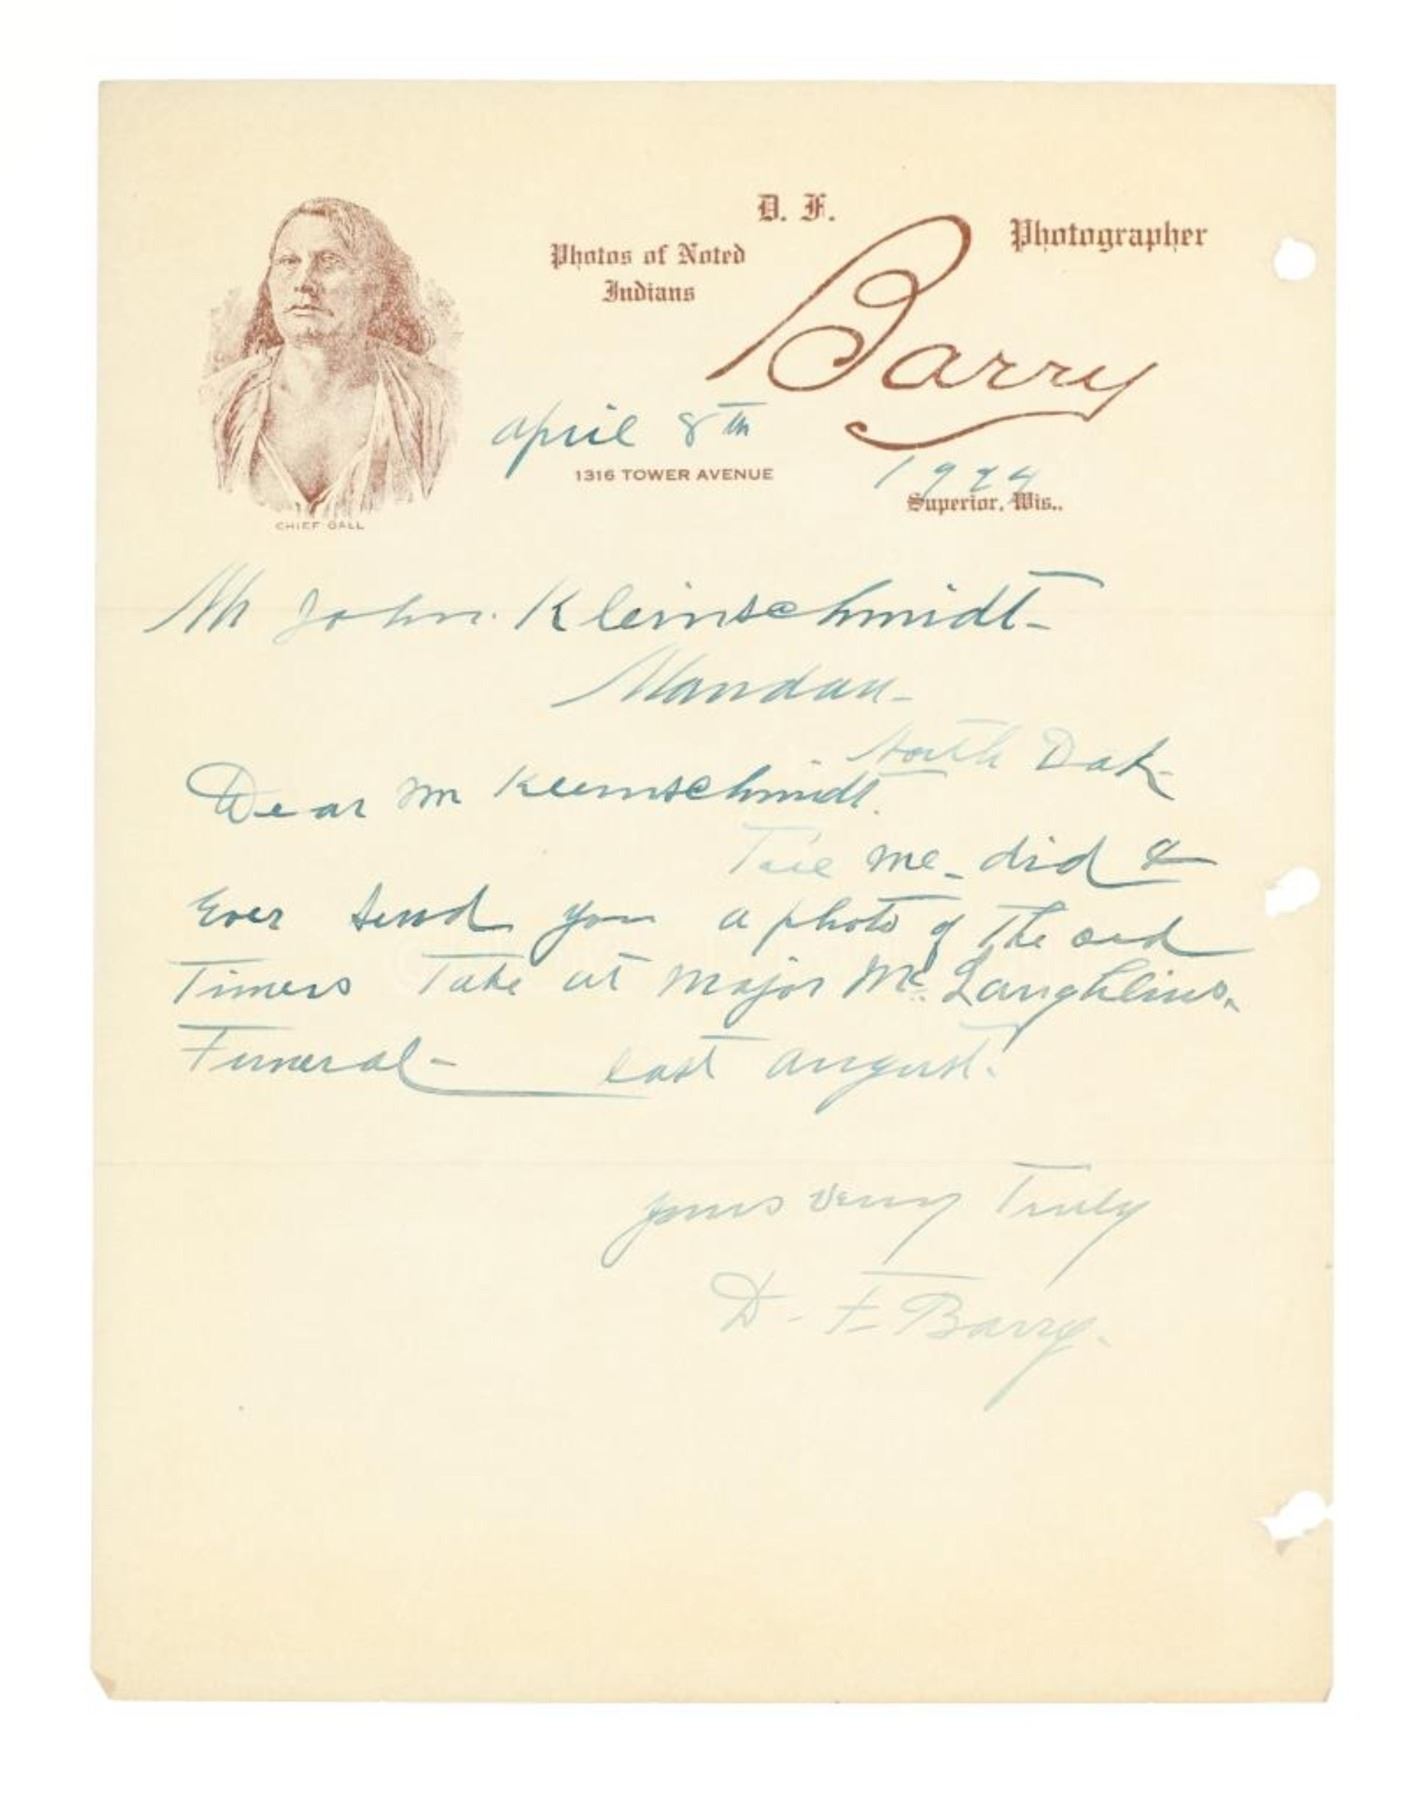 D. F.
Photos of Noted
Indians
Barry
Photographer
april 8th
1924
1316 TOWER AVENUE
Superior, Wis..
CHIEF GALL
Mr John. Kleinschmidt-
Mandan-
North Dak-
Dear Mr Kleinschmidt.
me_ did I
Ever send you a photo of The old
Timers Take at Major Mc. Laughlins.
Funeral- last august.
yours very Truly
D. F. Barry.